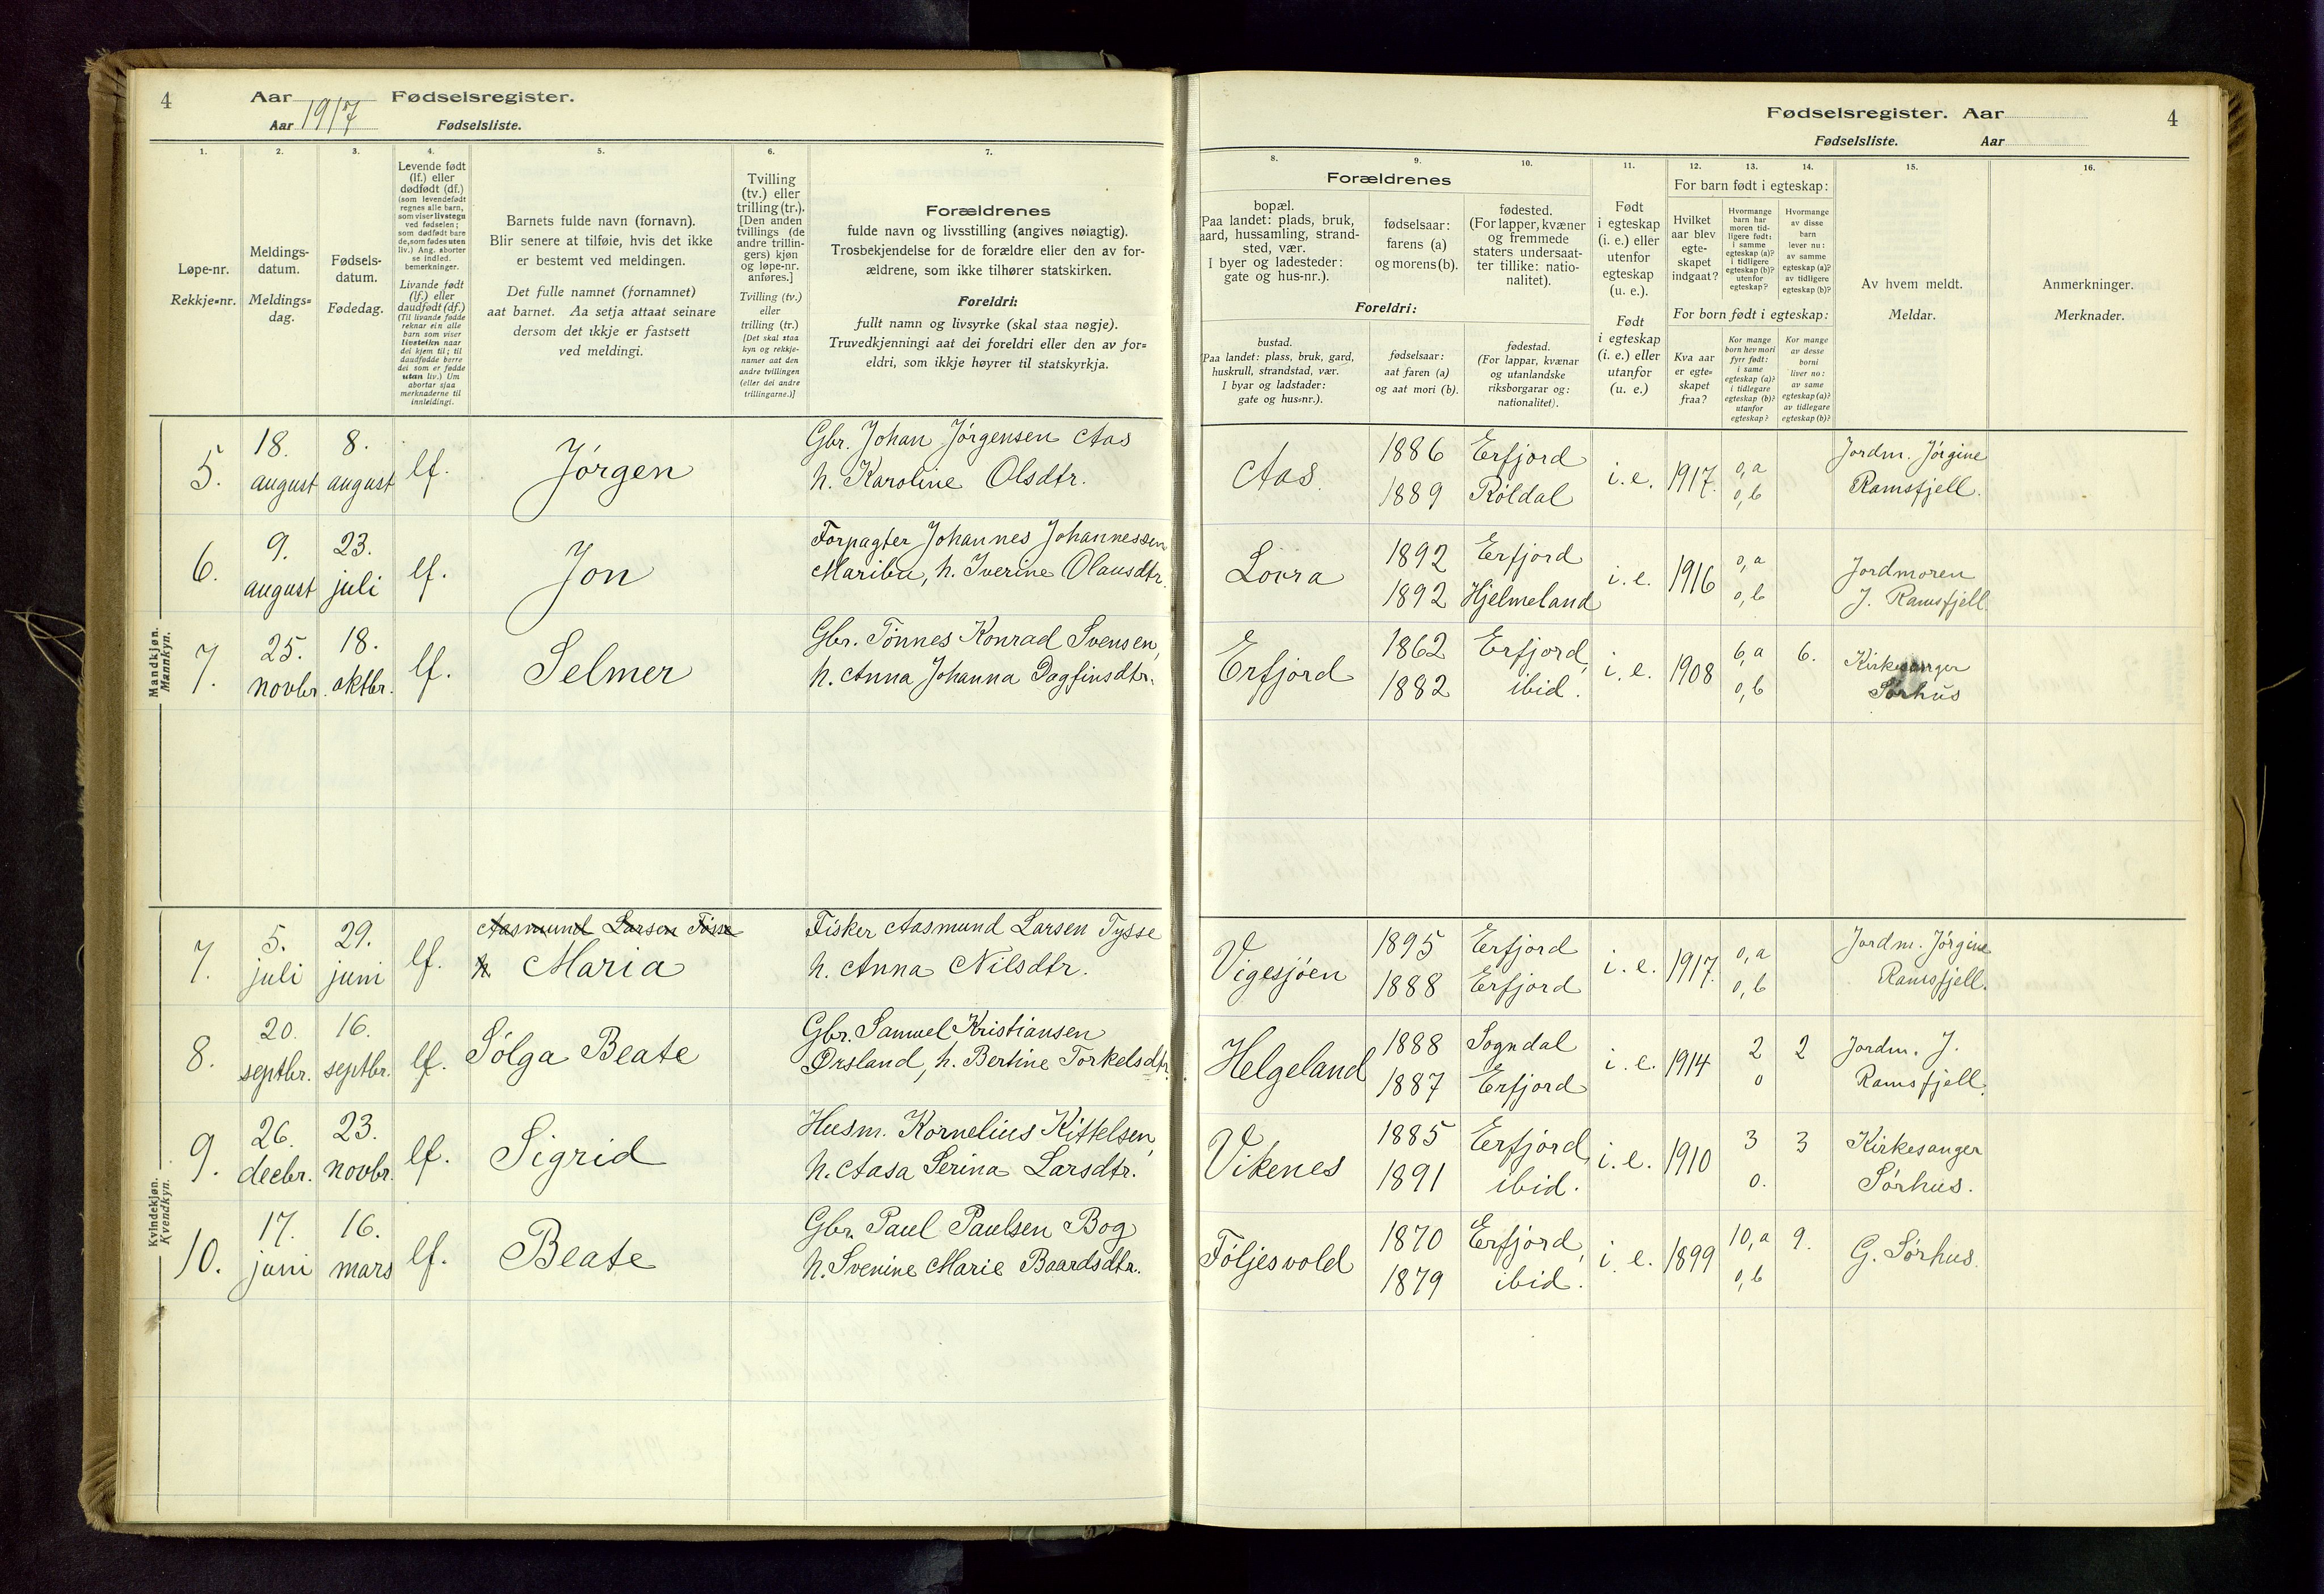 4
Aar 1917 Fødselsregister.
Aar Fødselsliste.
1.
Løpe-nr.
Rekkje=nr.
2.
Meldings-
datum.
Meldings=
dag.
3.
Fødsels-
datum.
Fødedag.
4.
Levende født
(lf.) eller
dødfødt (df.)
(som levendefødt
regnes alle barn,
som viser livstegn
ved fødselen;
som dødfødt bare
de, som fødes uten
liv.) Ang. aborter
se indled.
bemerkninger.
Livande født
(lf.) eller
daudfødt (df.)
(Til livande fødde
reknar ein alle
barn som viser
livsteikn naar
dei kjem til; til
daudfødde berre
dei som er fødde
utan liv.) Um
abortar sjaa
merknaderne til
innleidingi.
5.
Barnets fulde navn (fornavn).
Blir senere at tilføie, hvis det ikke
er bestemt ved meldingen.
Det fulle namnet (fornamnet)
aat barnet. Aa setja attaat seinare
dersom det ikkje er fastsett
ved meldingi.
6.
Tvilling
(tv.) eller
trilling (tr.).
[Den anden
tvillings (de
andre trillin-
gers) kjøn
og løpe-nr.
anføres.]
Tvilling (tv.)
eller
trilling (tr.)
[Det skal staa
kyn og rekkje-
numer aat den
andre tvillingen
(eller dei andre
trillingarne.)]
7.
Forældrenes
fulde navn og livsstilling (angives nøiagtig).
Trosbekjendelse for de forældre eller den av for-
ældrene, som ikke tilhører statskirken.
Foreldri:
fullt namn og livsyrke (skal staa nøgje).
Truvedkjenningi aat dei foreldri eller den av for=
eldri, som ikkje høyrer til statskyrkja.
Mandkjøn.
Mannkyn.
5.
18.
august
8.
august
lf.
Jørgen
Gbr. Johan Jørgensen Aas
h. Karoline Olsdtr.
6.
9.
august
23.
juli
lf.
Jon
Forpagter Johannes Johannessen
Maribu, h. Iverine Olausdtr.
7.
25.
novbr.
18.
oktbr.
lf.
Selmer
Gbr. Tønnes Konrad Svensen,
h. Anna Johanna Dagfinsdtr.
Kvindekjøn.
Kvendkyn.
7.
5.
juli
29.
juni
lf.
Aasmund Larsen Tøsse
h Maria
Fisker Aasmund Larsen Tysse
h. Anna Nilsdtr.
8.
20.
septbr.
16.
septbr.
lf.
Sølga Beate
Gbr. Samuel Kristiansen
Ørsland, h. Bertine Torkelsdtr.
9.
26.
decbr.
23.
novbr.
lf.
Sigrid
Husm. Kornelius Kittelsen,
h. Aasa Serina Larsdtr.
10.
17.
juni
16.
mars
lf.
Beate
Gbr. Paul Paulsen Bog
h. Svenine Marie Baardsdtr.
Fødselsregister. Aar 4
Fødselsliste. Aar
8.
Forældrenes
bopæl.
Paa landet: plads, bruk,
gaard, hussamling, strand-
sted, vær.
I byer og ladesteder:
gate og hus-nr.).
Foreldri:
bustad.
(Paa landet: plass, bruk, gard,
huskrull, strandstad, vær.
I byar og ladstader:
gate og hus=nr.).
9.
fødselsaar:
farens (a)
og morens (b).
fødselsaar:
aat faren (a)
og aat mori (b).
10.
fødested.
(For lapper, kvæner
og fremmede
staters undersaat-
ter tillike: natio-
nalitet).
fødestad.
(For lappar, kvænar
og utanlandske
riksborgarar og:
nationalitet).
11.
Født
i egteskap
(i. e.) eller
utenfor
egteskap
(u. e.).
Født
i egteskap
(i. e.) eller
utanfor
(u. e.)
12.
For barn født i egteskap:
Hvilket
aar blev
egte-
skapet
indgaat?
For born født i egteskap:
Kva aar
er egte=
skapet
fraa?
13.
Hvormange
barn har
moren tid-
ligere født:
i samme
egteskap (a)?
i tidligere
egteskap (b)?
utenfor
egteskap?
Kor mange
born hev mori
fyrr født:
i same
egteskap (a)?
i tidlegare
egteskap (b)?
utanfor
egteskap?
14.
Hvormange
av disse
barn
lever nu:
av samme
egteskap (a)?
av tidligere
egteskap (b)?
Kor mange
av desse
borni
liver no:
av same
egteskap (a)?
av tidlegare
egteskap (b)?
15.
Av hvem meldt.
Meldar.
16.
Anmerkninger.
Merknader.
Aas.
1886
1889
Erfjord
Røldal
i. e.
1917.
0, a
0, b
Jordm. Jørgine
Ramsfjell.
Lovra
1892
1892
Erfjord
Hjelmeland
i. e.
1916
0, a
0, b
Jordmoren
J. Ramsfjell.
Erfjord
1862
1882
Erfjord,
ibid.
i. e.
1908
6, a
0, b
6.
Kirkesanger
Sørhus
Vigesjøen
1895
1888
Erfjord
Erfjord
i. e.
1917.
0, a
0, b
Jordm. Jørgine
Ramsfjell.
Helgeland
1888
1887
Sogndal
Erfjord
i. e.
1914
2
0
2
Jordm. J.
Ramsfjell.
Vikenes
1885
1891
Erfjord,
ibid.
i. e.
1910
3
0.
3
Kirkesanger
Sørhus.
Føljesvold
1870
1879
Erfjord,
ibid.
i. e.
1899
10, a
0, b
9.
G. Sørhus.